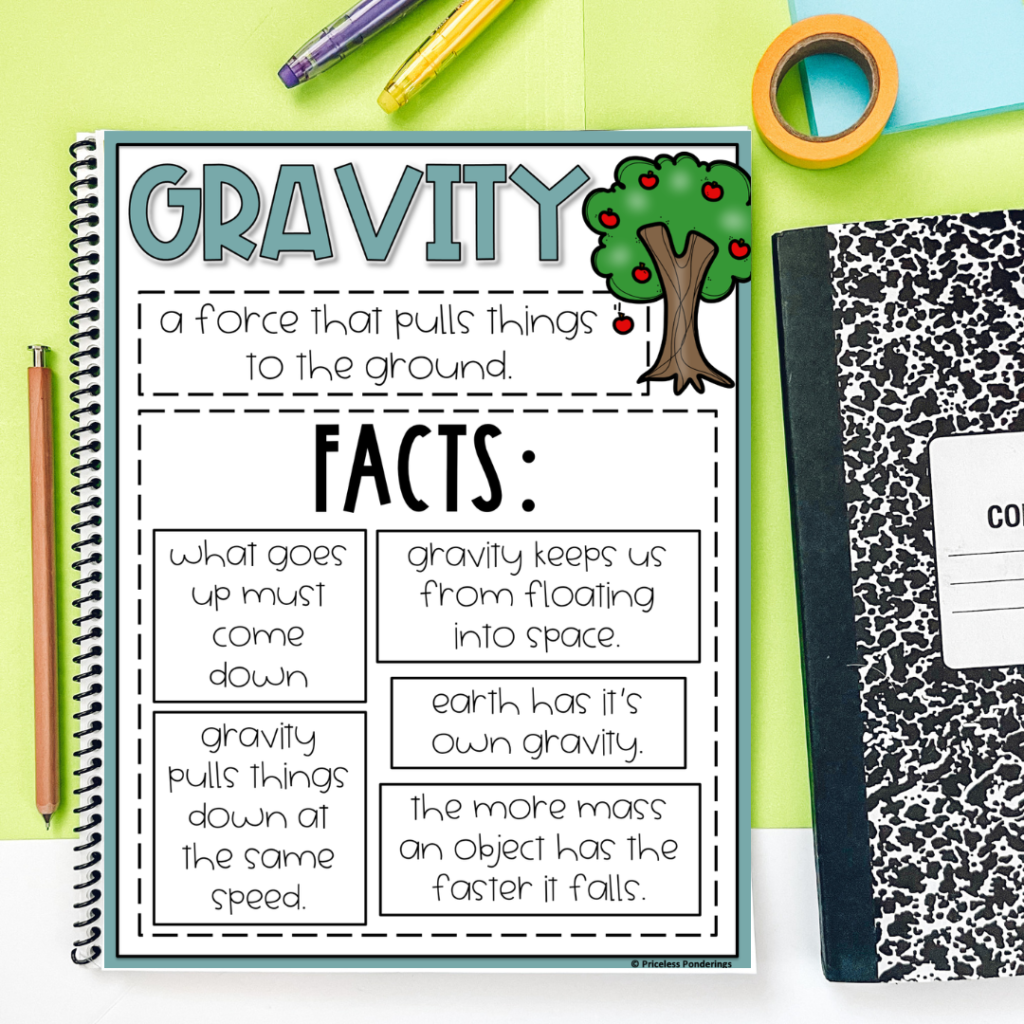 GRAVITY
a force that pulls things
to the ground.
FACTS:
what goes
up must
come
down
gravity
pulls things
down at
the same
speed.
gravity keeps us
from floating
into space.
earth has it's
own gravity.
the more mass
an object has the
faster it falls.
© Priceless Ponderings